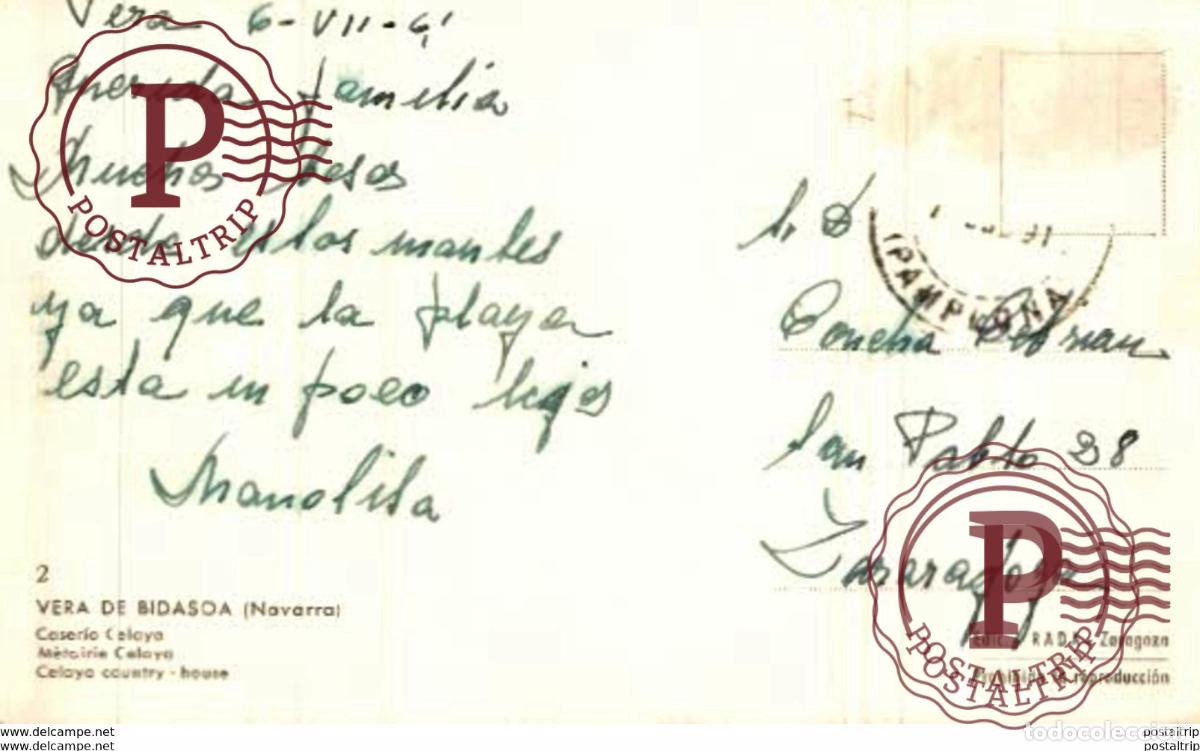 Vera 6-VII-61
Querida familia
Muchos besos
desde estos montes
ya que la playa
esta un poco lejos
Manolita
2
VERA DE BIDASOA (Navarra)
Caserío Celaya
Métairie Celaya
Celaya country - house
PAMPLONA
S. D
Concha Cebrian
San Pablo 28
Zararagoza
Edic. RADE Zaragoza
Prohibida la reproducción
P
POSTALTRIP
P
POSTALTRIP
POSTALTRIP
todocoleccion
www.delcampe.net
www.delcampe.net
postaltrip
postaltrip